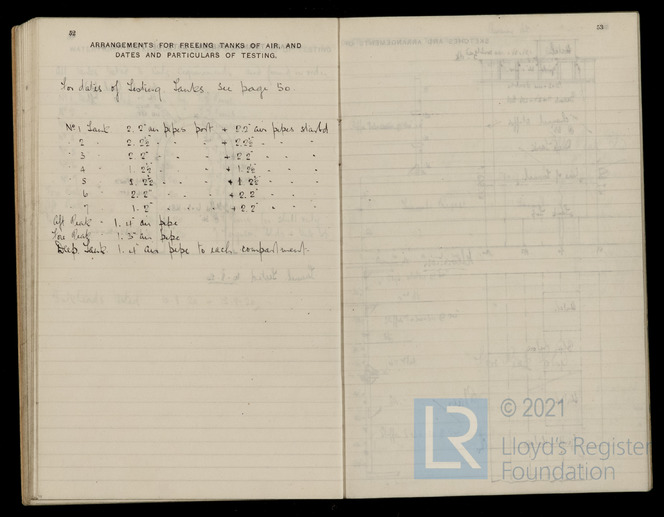 52
ARRANGEMENTS FOR FREEING TANKS OF AIR, AND
DATES AND PARTICULARS OF TESTING.
For dates of Testing Tanks. See page 50.
No 1 Tank 2. 2" air pipes port + 2.2" air pipes starbd
" 2 " 2. 2½ " " " + 2.2½ " " "
" 3 " 2. 2" " " " + 2.2" " " "
" 4 " 1. 2½ " " " + 1.2½ " " "
" 5 " 1. 2½ " " " + 1.2½ " " "
" 6 " 2. 2" " " " + 2.2" " " "
" 7 " 1. 2" " " " + 2.2" " " "
Aft Peak " 1. 4" air pipe
Fore Peak 1. 3" air pipe
Deep Tank 1. 4" air pipe to each compartment.
53
LR
© 2021
Lloyd's Register
Foundation